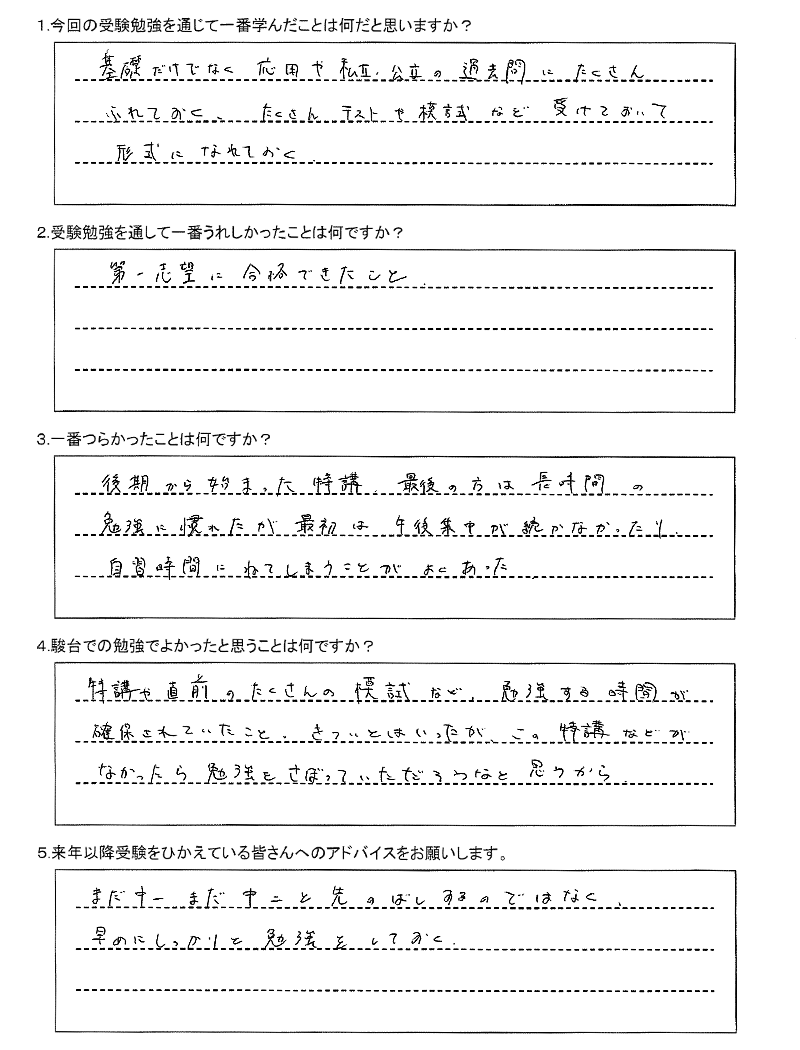 1.今回の受験勉強を通じて一番学んだことは何だと思いますか？
基礎だけでなく 応用や 私立・公立の 過去問 に たくさん
ふれておく、 たくさん テストや 模試 など 受けておいて
形式に なれておく.
2.受験勉強を通して一番うれしかったことは何ですか？
第一志望に 合格できたこと.
3.一番つらかったことは何ですか？
後期から始まった特講. 最後の方は 長時間 の
勉強に慣れたが 最初は 午後集中が続かなかったり.
自習時間に ねてしまうことが よくあった.
4.駿台での勉強でよかったと思うことは何ですか？
特講や直前のたくさんの模試など、勉強する時間が
確保されていたこと. きついとはいったが、この 特講などが
なかったら 勉強をさぼっていただろうなと 思うから.
5.来年以降受験をひかえている皆さんへのアドバイスをお願いします。
まだ中一 まだ 中二と 先のばしするのではなく、
早めにしっかりと 勉強をしておく.